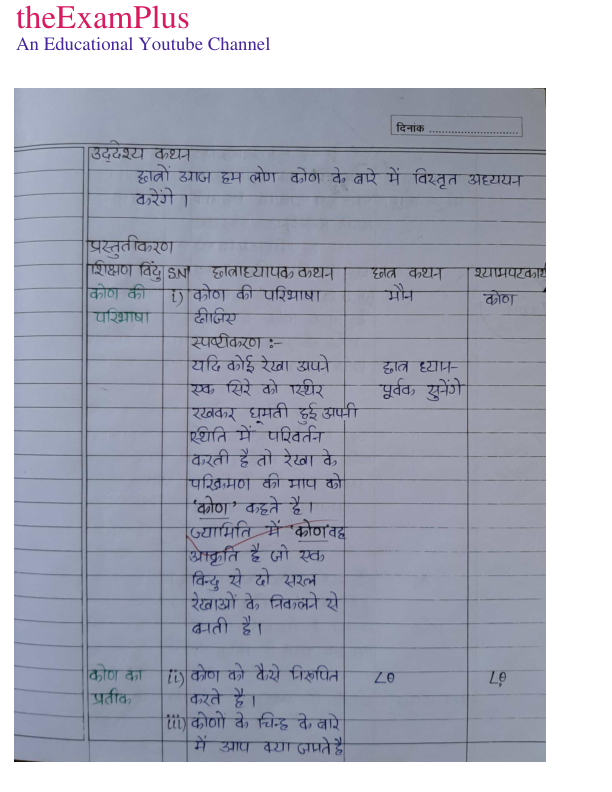 theExamPlus
An Educational Youtube Channel
दिनांक ..............................
उद्देश्य कथन
छात्रों आज हम लोग कोण के बारे में विस्तृत अध्ययन
करेंगे ।
प्रस्तुतीकरण
शिक्षण विंदु SN छात्राध्यापक कथन छात्र कथन श्यामपटकार्य
कोण की i) कोण की परिभाषा मौन कोण
परिभाषा दीजिए
स्पष्टीकरण :-
यदि कोई रेखा अपने छात्र ध्यान-
एक सिरे को स्थिर पूर्वक सुनेंगे
रखकर घूमती हुई अपनी
स्थिति में परिवर्तन
करती है तो रेखा के
परिक्रमण की माप को
'कोण' कहते है।
ज्यामिति में 'कोण' वह
आकृति है जो एक
विन्दु से दो सरल
रेखाओं के निकलने से
बनती है।
कोण का ii) कोण को कैसे निरूपित ∠θ ∠θ
प्रतीक करते है।
iii) कोणों के चिन्ह के बारे
में आप क्या जानते है